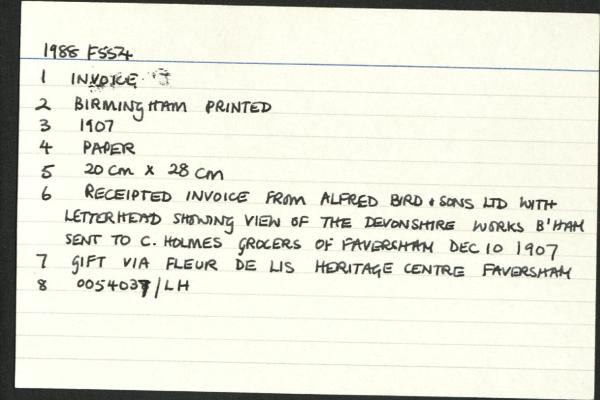 1988 F554
1 INVOICE
2 BIRMINGHAM PRINTED
3 1907
4 PAPER
5 20 cm x 28 cm
6 RECEIPTED INVOICE FROM ALFRED BIRD & SONS LTD WITH
LETTERHEAD SHOWING VIEW OF THE DEVONSHIRE WORKS B'HAM
SENT TO C. HOLMES GROCERS OF FAVERSHAM DEC 10 1907
7 GIFT VIA FLEUR DE LIS HERITAGE CENTRE FAVERSHAM
8 0054037/LH